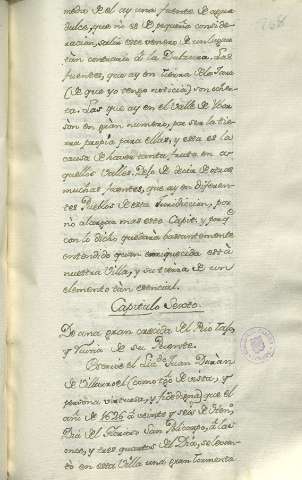 268
medio de el ay una fuente de agua
dulce, que no es de pequeña conside-
racion, salir este venero de un lugar
tàn contrario de la Dulzura. Las
fuentes, que ay en tierra de la Jara
(de que yo tengo noticia) son ochen-
ta. Las que ay en el Valle de
son en gràn numero, por ser la tie-
rra propia para ellas, y esta es la
causa de haver tanta fruta en a-
quellos Valles. Dejo de decir de otras
muchas fuentes, que ay en diferen-
tes Pueblos de esta jurisdiccion, por
no alargar mas este Capit. y porq
con lo dicho quedarà bastantemente
entendido quan enrriquecida està
nuestra Villa, y su tierra de un
elemento tàn esencial.
Capitulo Sexto.
De una gran crecida del Rio Tajo,
y ruina de su Puente.
Escrive el Lic. Juan Duràn
de Villarroel (como tgo de vista, y
persona virtuosa, y fidedigna) que el
año de 1626 à veinte y seis de Hen,
Dia del Glorioso San Policarpo, à las
once, y tres quartos del Dia, se levan-
tò en esta Villa una gran tormenta